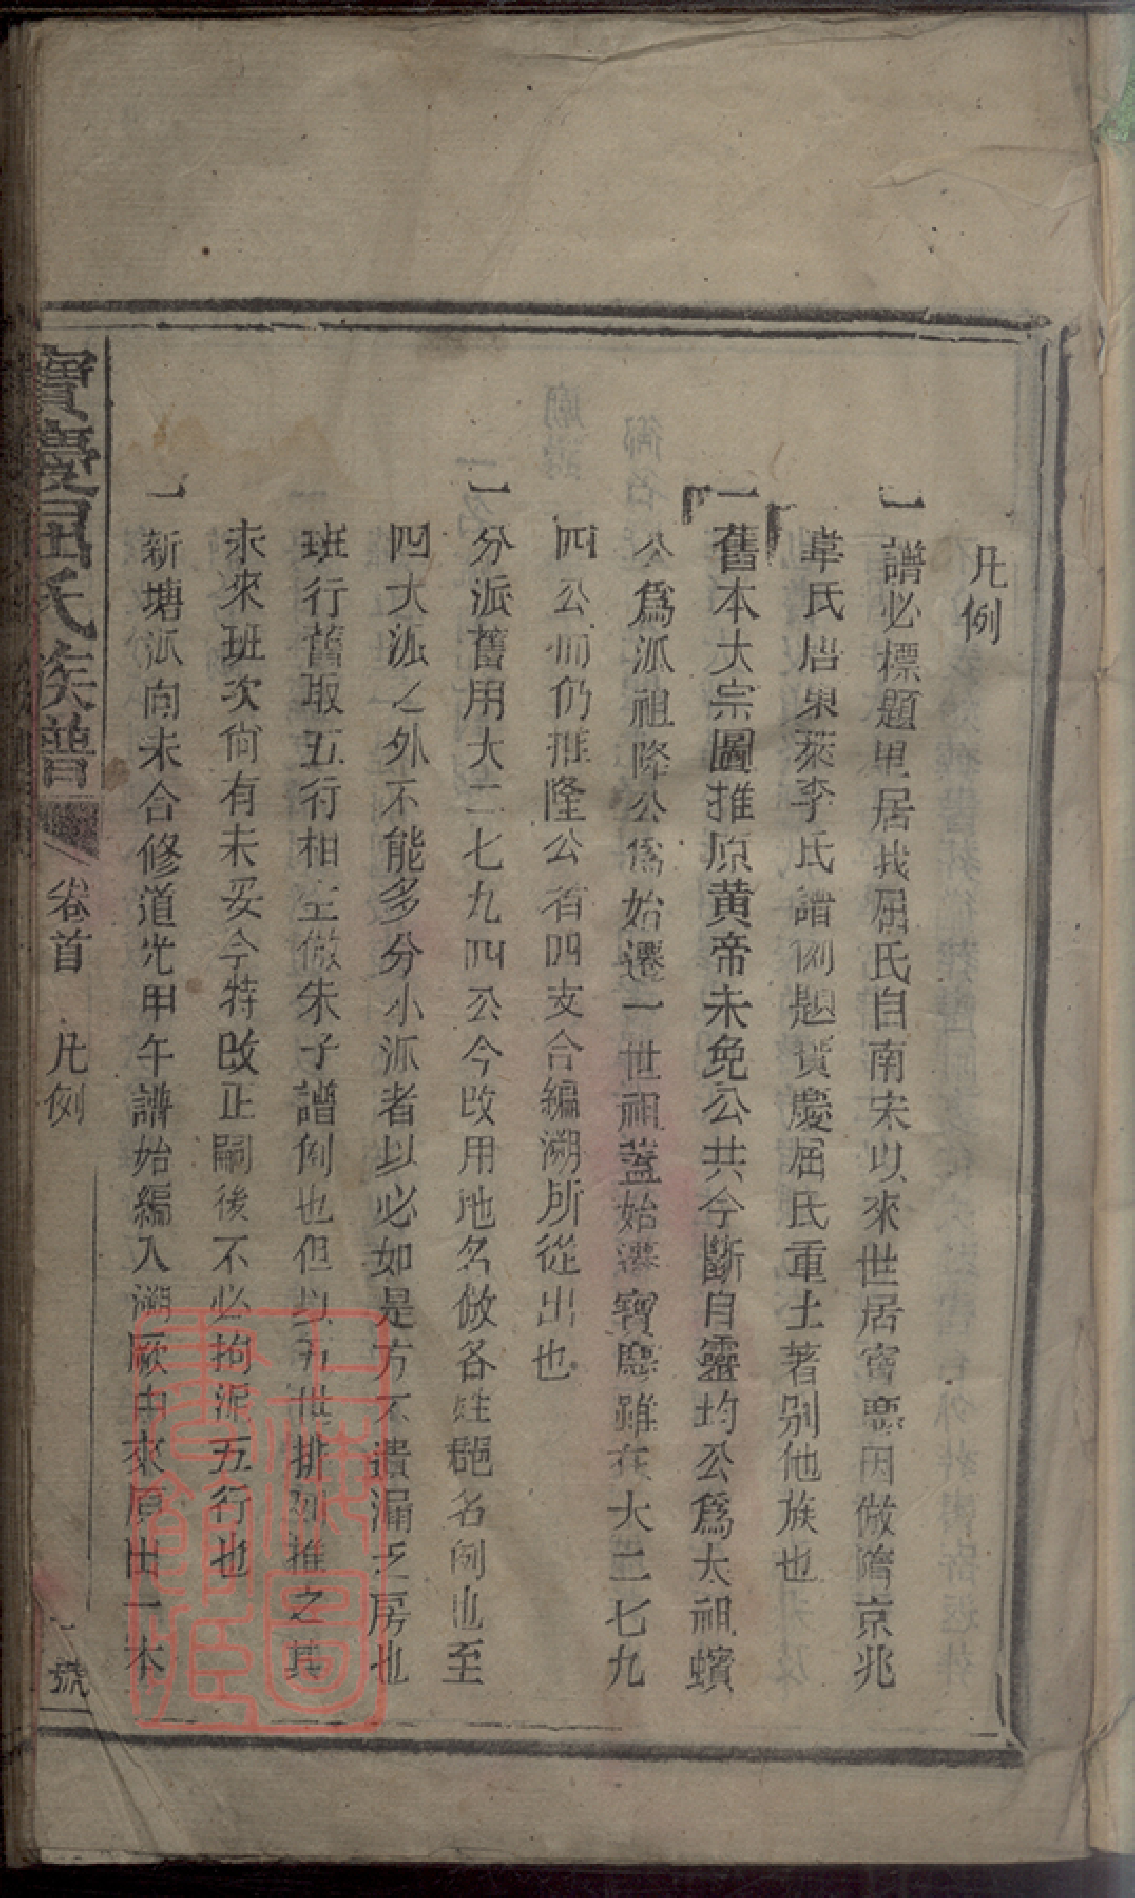 凡例
一譜必標題里居我屈氏自南宋以來世居寳慶因倣隋京兆
韋氏唐東萊李氏譜例題寳慶屈氏重土著别他族也
一舊本大宗圖推原黄帝未免公共今斷自靈均公爲太祖蠙
公爲派祖隆公爲始遷一世祖蓋始遷寳慶雖在大二七九
四公而仍推隆公者四支合編溯所從出也
一分派舊用大二七九四公今改用地名倣各姓郡名例也至
四大派之外不能多分小派者以必如是方不遺漏乏房也
班行舊取五行相生倣朱子譜例也但以五世排列推之其
未來班次尚有未妥今特改正嗣後不必拘泥五行也
一新塘派向未合修道光甲午譜始編入溯厥由來原出一本
寳慶屈氏族譜
卷首 凡例
一號
上海圖書館藏